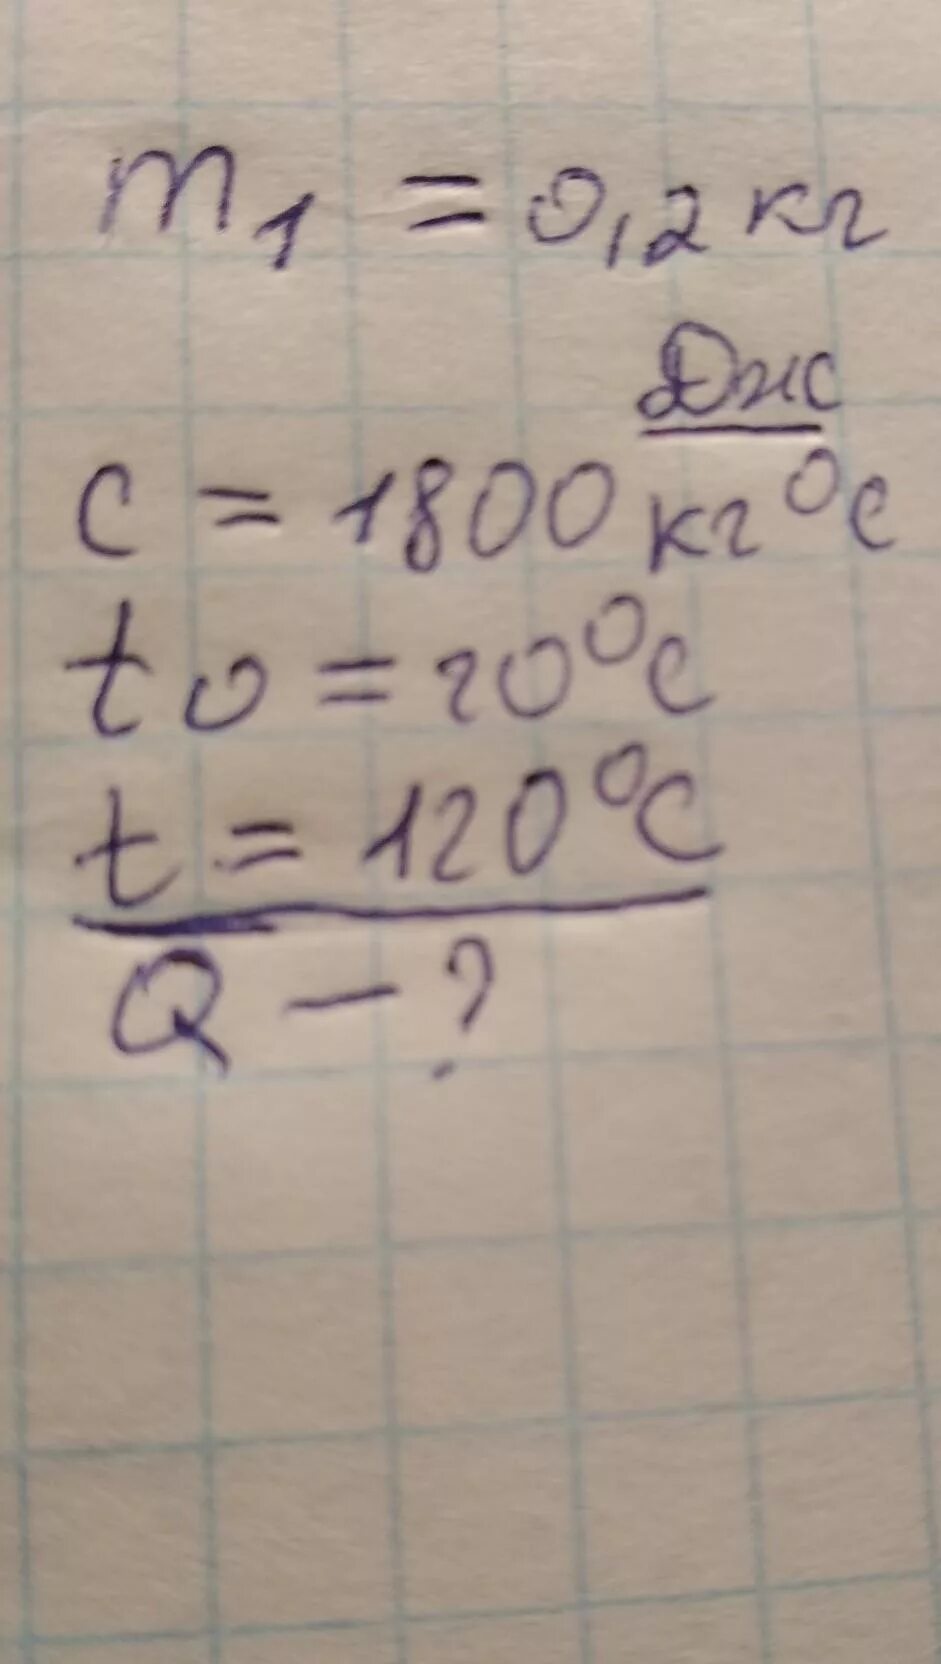 m₁ = 0,2 кг
Дж
c = 1800 кг °C
t₀ = 20°C
t = 120°C
Q – ?